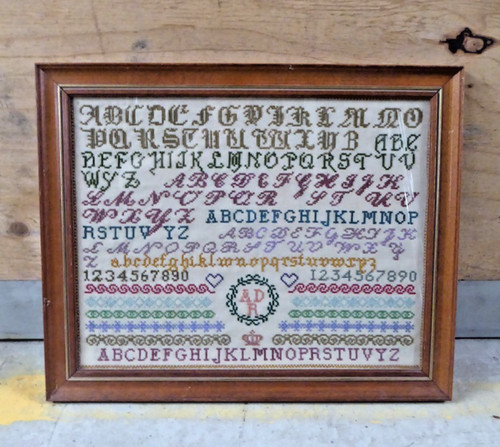 ABCDEFGHIJKLMNO
PQRSTUVWXYZ ABC
DEFGHIJKLMNOPQRSTUV
WYZ ABCDEFGHIJK
LMNOPQR STUV
WXYZ ABCDEFGHIJKLMNOP
RSTUV YZ ABCDEFGHIJK
LMNOPQRSTUVWXY
Z abcdefghiklmnopqrstuvwxyz
1234567890 1234567890
AD
R
ABCDEFGHIJKLMNOPRSTUVYZ